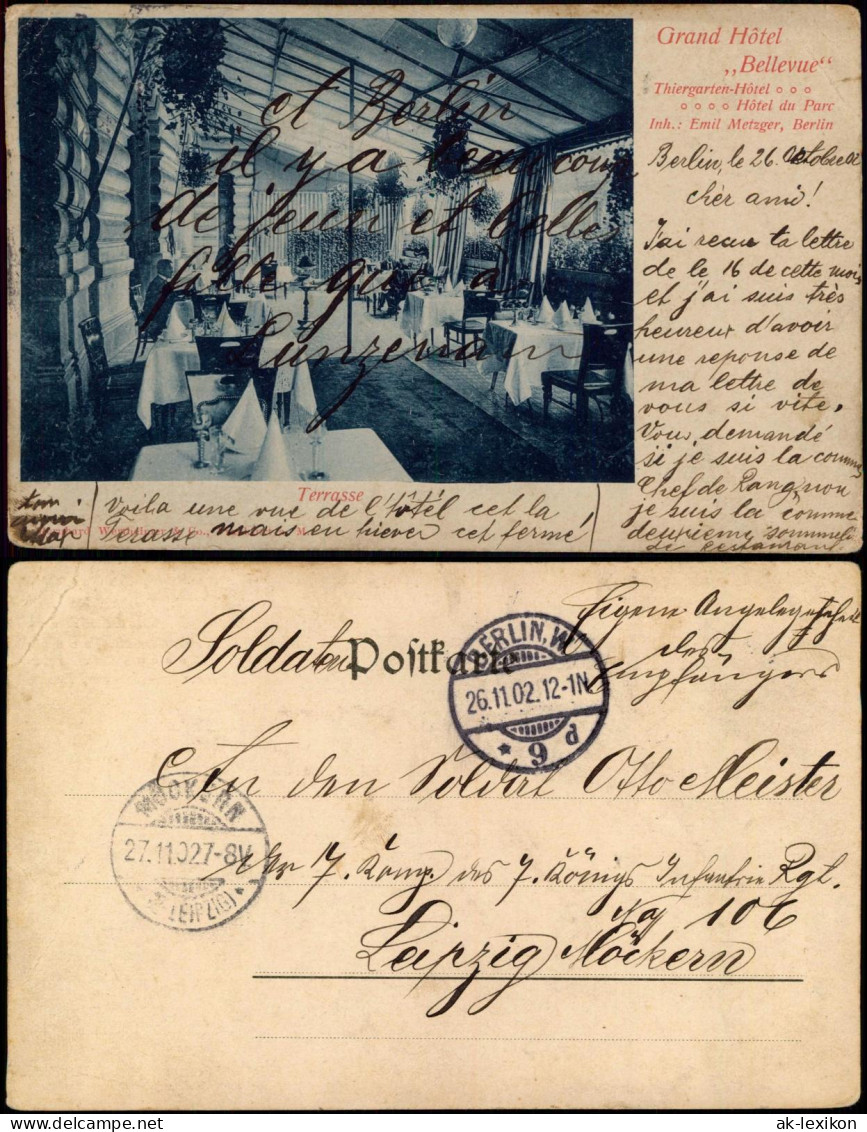 Grand Hôtel
„Bellevue“
Thiergarten-Hôtel
Hôtel du Parc
Inh.: Emil Metzger, Berlin
Berlin, le 26. Octobre
cher ami!
J'ai recue ta lettre
de le 16 de cette mois
et j'ai suis très
heureux d'avoir
une reponse de
ma lettre de
vous si vite.
Vous demandé
si je suis la comme
Chef de Rang, non
je suis la comme
deuxieme sommelier
de restaurant
et Berlin
il y a beaucoup
de jeun et belle
fille que à
Terrasse
Voila une vue de l'hôtél cet la
Terasse mais en hiever cet fermé!
ton
ami
Soldaten Postkarte
Eigene Angelegenheit
des
Empfängers
BERLIN, W
26.11.02.12-1N
9 d
An den Soldat Otto Meister
MÖCKERN
27.11.02 7-8V
(LEIPZIG)
der 7. Komp. des 7. Königs Infantrie Rgt.
No 106
Leipzig Möckern
ak-lexikon